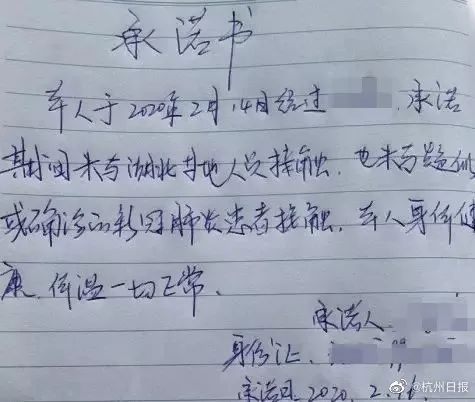 承诺书
本人于2020年2月14日经过 承诺
其间未与湖北当地人员接触.也未与疑似
或确诊的新冠肺炎患者接触.本人身体健
康.体温一切正常.
承诺人.
身份证.
承诺日.2020.2.
@杭州日报